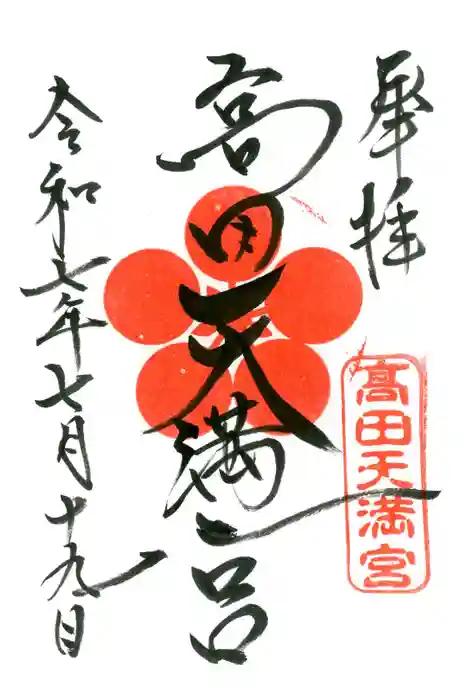 奉拝
髙田天満宮
高田天満宮
令和七年七月十九日